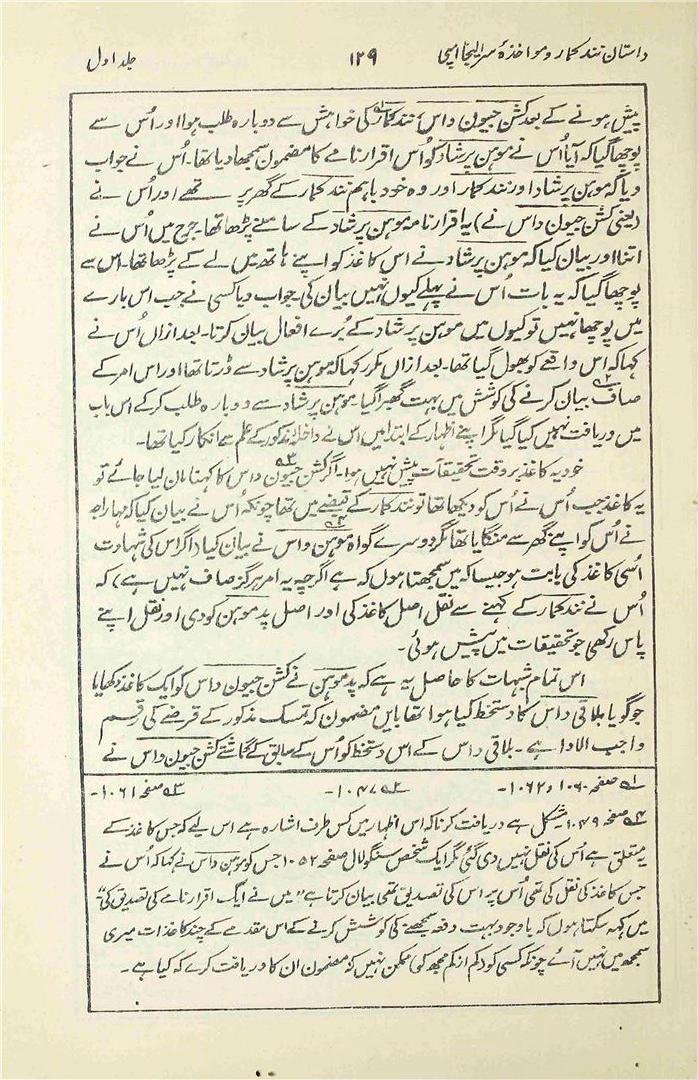 داستان نندکمار و مواخذۂ سر الیجا امپی ۱۲۹ جلد اول
پیش ہونے کے بعد کشن جیون داس نندکمار کی خواہش سے دوبارہ طلب ہوا اور اُس سے
پوچھا گیا کہ آیا اُس نے موہن پرشاد کو اُس اقرار نامے کا مضمون سمجھا دیا تھا۔ اُس نے جواب
دیا کہ موہن پرشاد اور نندکمار اور وہ خود باہم نندکمار کے گھر پر تھے اور اُس نے
(یعنی کشن جیون داس نے) یہ اقرار نامہ موہن پرشاد کے سامنے پڑھا تھا۔ جرح میں اُس نے
اتنا اور بیان کیا کہ موہن پرشاد نے اس کاغذ کو اپنے ہاتھ میں لے کے پڑھا تھا۔ اس سے
پوچھا گیا کہ یہ بات اُس نے پہلے کیوں نہیں بیان کی۔ جواب دیا کسی نے جب اس بارے
میں پوچھا نہیں تو کیوں میں موہن پرشاد کے بُرے افعال بیان کرتا۔ بعد ازاں اُس نے
کہا کہ اس واقعے کو بھول گیا تھا۔ بعد ازاں مکرر کہا کہ موہن پرشاد سے ڈرتا تھا اور اس امر کے
صاف بیان کرنے کی کوشش میں بہت گھبرا گیا۔ موہن پرشاد سے دوبارہ طلب کر کے اس باب
میں دریافت نہیں کیا گیا مگر اپنے اظہار کے ابتدا میں اس نے داخلۂ مذکور کے علم سے انکار کیا تھا۔
خود یہ کاغذ بروقت تحقیقات پیش نہیں ہوا۔ اگر کشن جیون داس کا کہنا مان لیا جائے تو
یہ کاغذ جب اُس نے اُس کو دیکھا تھا تو نندکمار کے قبضے میں تھا چونکہ اُس نے بیان کیا کہ مہاراجہ
نے اُس کو اپنے گھر سے منگایا تھا مگر دوسرے گواہ موہن داس نے بیان کیا (اگر اس کی شہادت
اُسی کاغذ کی بابت ہو جیسا کہ میں سمجھتا ہوں کہ ہے اگرچہ یہ امر ہرگز صاف نہیں ہے) کہ
اُس نے نندکمار کے کہنے سے نقل اصل کاغذ کی اور اصل پدموہن کو دی اور نقل اپنے
پاس رکھی جو تحقیقات میں پیش ہوئی۔
اس تمام شبہات کا حاصل یہ ہے کہ پدموہن نے کشن جیون داس کو ایک کاغذ دکھایا
جو گویا بلاقی داس کا دستخط کیا ہوا تھا بایں مضمون کہ تمسک مذکور کے قرضے کی رقم
واجب الادا ہے۔ بلاقی داس کے اس دستخط کو اُس کے سابق کے گماشتے کشن جیون داس نے
۱ صفحہ ۱۰۶۰ و ۱۰۶۲۔ ۲ ۱۰۴۷۔ ۳ صفحہ ۱۰۶۱۔
۴ صفحہ ۱۰۴۹۔ مشکل ہے دریافت کرنا کہ اس اظہار میں کس طرف اشارہ ہے اس لیے کہ جس کاغذ کے
یہ متعلق ہے اُس کی نقل نہیں دی گئی مگر ایک شخص سنگولال صفحہ ۱۰۵۲ جس کو موہن داس نے کہا کہ اُس نے
جس کاغذ کی نقل کی تھی اُس پر اس کی تصدیق تھی بیان کرتا ہے "میں نے ایک اقرار نامے کی تصدیق کی"
میں کہہ سکتا ہوں کہ باوجود بہت دفعہ سمجھنے کی کوشش کرنے کے اس مقدمے کے چند کاغذات میری
سمجھ میں نہیں آئے چونکہ کسی کو (کم از کم مجھ کو) ممکن نہیں کہ مضمون ان کا دریافت کرے کہ کیا ہے۔